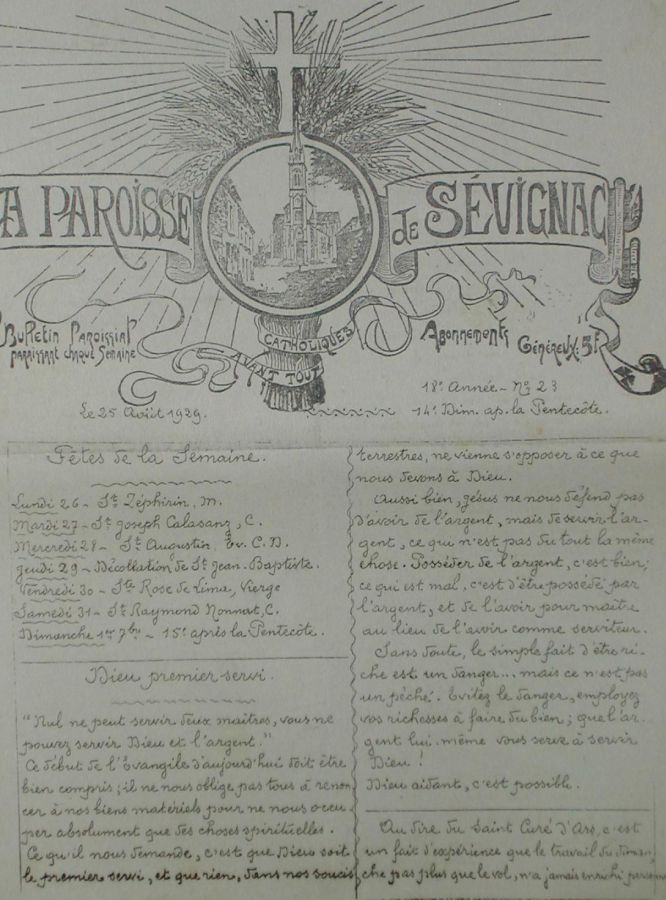 A PAROISSE de SÉVIGNAC
Bulletin Paroissial
paraissant chaque Semaine
CATHOLIQUES
AVANT TOUT
Abonnements
Généreux: 5f
18e Année - No 23
Le 25 Août 1929.
14e Dim. ap. la Pentecôte.
Fêtes de la Semaine.
Lundi 26 - St Zéphirin, M.
Mardi 27 - St Joseph Calasanz, C.
Mercredi 28 - St Augustin, Ev. C. D.
Jeudi 29 - Décollation de St Jean-Baptiste.
Vendredi 30 - Ste Rose de Lima, Vierge
Samedi 31 - St Raymond Nonnat, C.
Dimanche 1er 7bre - 15e après la Pentecôte.
Dieu premier servi.
"Nul ne peut servir deux maîtres, vous ne
pouvez servir Dieu et l'argent."
Ce début de l'Evangile d'aujourd'hui doit être
bien compris; il ne nous oblige pas tous à renon
cer à nos biens matériels pour ne nous occu-
per absolument que des choses spirituelles.
Ce qu'il nous demande, c'est que Dieu soit
le premier servi, et que rien, dans nos soucis
terrestres, ne vienne s'opposer à ce que
nous devons à Dieu.
Aussi bien, Jésus ne nous défend pas
d'avoir de l'argent, mais de servir l'ar-
gent, ce qui n'est pas du tout la même
chose. Posséder de l'argent, c'est bien;
ce qui est mal, c'est d'être possédé par
l'argent, et de l'avoir pour maître
au lieu de l'avoir comme serviteur.
Sans doute, le simple fait d'être ri-
che est un danger... mais ce n'est pas
un péché. Evitez le danger, employez
vos richesses à faire du bien; que l'ar-
gent lui-même vous serve à servir
Dieu!
Dieu aidant, c'est possible.
Au dire du Saint Curé d'Ars, c'est
un fait d'expérience que le travail du diman
che pas plus que le vol, n'a jamais enrichi